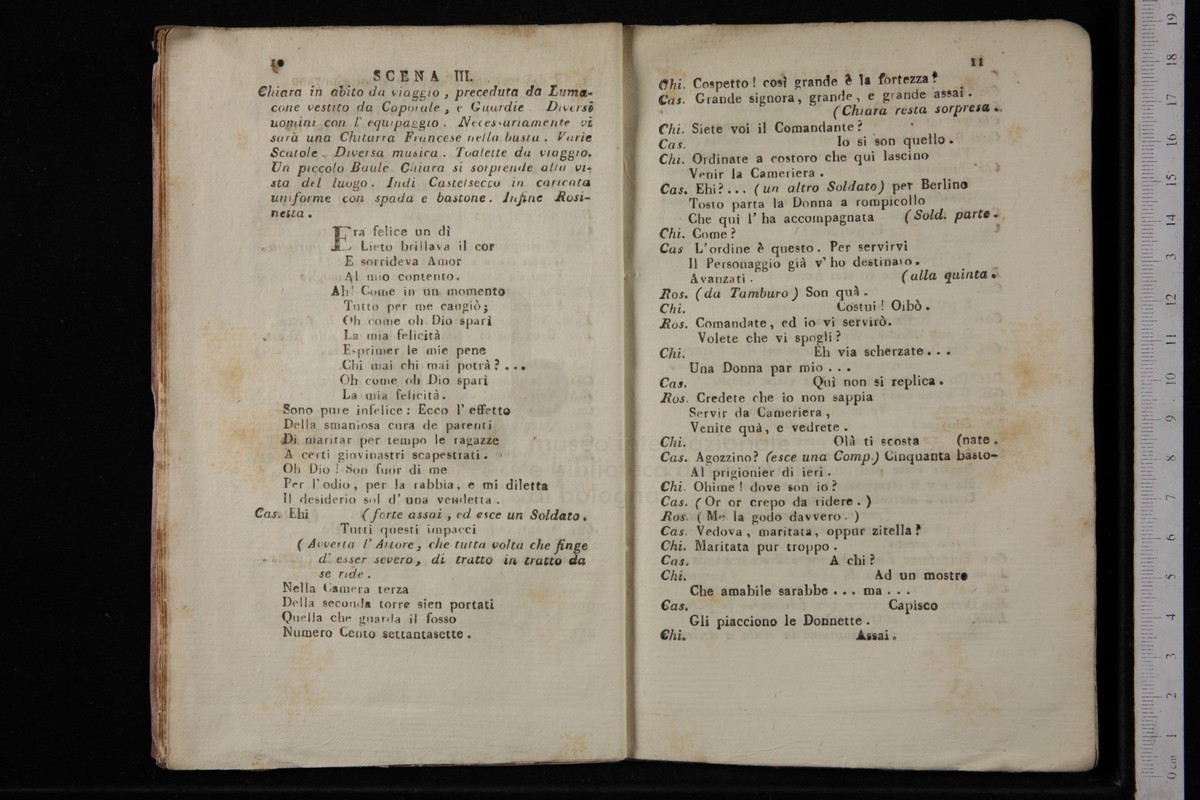 10
SCENA III.
Chiara in abito da viaggio , preceduta da Luma-
cone vestito da Caporale , e Guardie Diversi
uomini con l' equipaggio . Necessariamente vi
sarà una Chitarra Francese nella busta . Varie
Scatole . Diversa musica . Toalette da viaggio.
Un piccolo Baule Chiara si sorprende alla vi-
sta del luogo . Indi Castelsecco in caricata
uniforme con spada e bastone . Infine Rosi-
netta .
Era felice un dì
Lieto brillava il cor
E sorrideva Amor
Al mio contento.
Ah! Come in un momento
Tutto per me cangiò ;
Oh come oh Dio sparì
La mia felicità
Esprimer le mie pene
Chi mai chi mai potrà ? ...
Oh come oh Dio sparì
La mia felicità .
Sono pure infelice : Ecco l' effetto
Della smaniosa cura de parenti
Di maritar per tempo le ragazze
A certi giovinastri scapestrati .
Oh Dio ! Son fuor di me
Per l' odio , per la rabbia, e mi diletta
Il desiderio sol d' una vendetta .
Cas. Ehi (forte assai , ed esce un Soldato .
Tutti questi impacci
( Avverta l' Attore, che tutta volta che finge
d' esser severo, di tratto in tratto da
se ride .
Nella Camera terza
Della seconda torre sien portati
Quella che guarda il fosso
Numero Cento settantasette .
11
Chi. Cospetto ! così grande è la fortezza ?
Cas. Grande signora, grande, e grande assai .
(Chiara resta sorpresa .
Chi. Siete voi il Comandante ?
Cas. Io si son quello .
Chi. Ordinate a costoro che qui lascino
Venir la Cameriera .
Cas. Ehi ? ... (un altro Soldato) per Berlino
Tosto parta la Donna a rompicollo
Che qui l' ha accompagnata (Sold. parte .
Chi. Come ?
Cas L'ordine è questo . Per servirvi
Il Personaggio già v' ho destinato .
Avanzati . (alla quinta .
Ros. (da Tamburo) Son quà .
Chi. Costui ! Oibò .
Ros. Comandate, ed io vi servirò.
Volete che vi spogli ?
Chi. Eh via scherzate . . .
Una Donna par mio . . .
Cas. Quì non si replica .
Ros. Credete che io non sappia
Servir da Cameriera ,
Venite quà, e vedrete .
Chi. Olà ti scosta (nate .
Cas. Agozzino? (esce una Comp.) Cinquanta basto-
Al prigionier di ieri .
Chi. Ohime ! dove son io ?
Cas. ( Or or crepo da ridere . )
Ros. ( Me la godo davvero . )
Cas. Vedova , maritata, oppur zitella ?
Chi. Maritata pur troppo .
Cas. A chi ?
Chi. Ad un mostro
Che amabile sarabbe . . . ma . . .
Cas. Capisco
Gli piacciono le Donnette .
Chi. Assai .